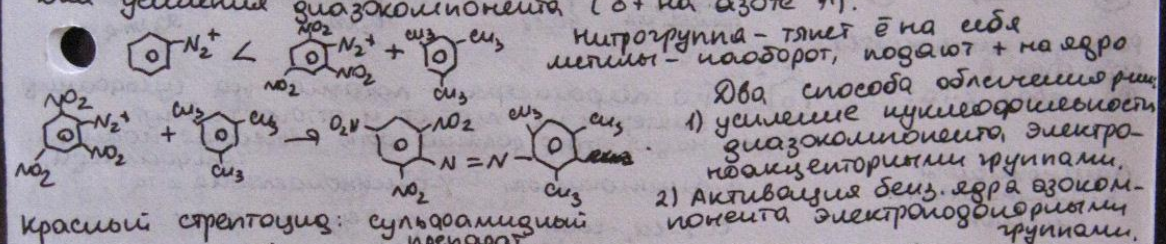 для усиления диазокомпонента (δ+ на азоте ↑).
N₂⁺ < NO₂ N₂⁺ NO₂ NO₂ + CH₃ CH₃ CH₃
нитрогруппа – тянет ē на себя
метилы – наоборот, подают + на ядро
Два способа облегчения р-ции:
NO₂ NO₂ N₂⁺ NO₂ NO₂ + CH₃ CH₃ CH₃ → O₂N NO₂ NO₂ N=N CH₃ CH₃ CH₃
1) усиление нуклеофильности
диазокомпонента, электро-
ноакцепторными группами.
2) Активация бенз. ядра азоком-
понента электронодонорными
группами.
Красный стрептоцид: сульфамидный
препарат